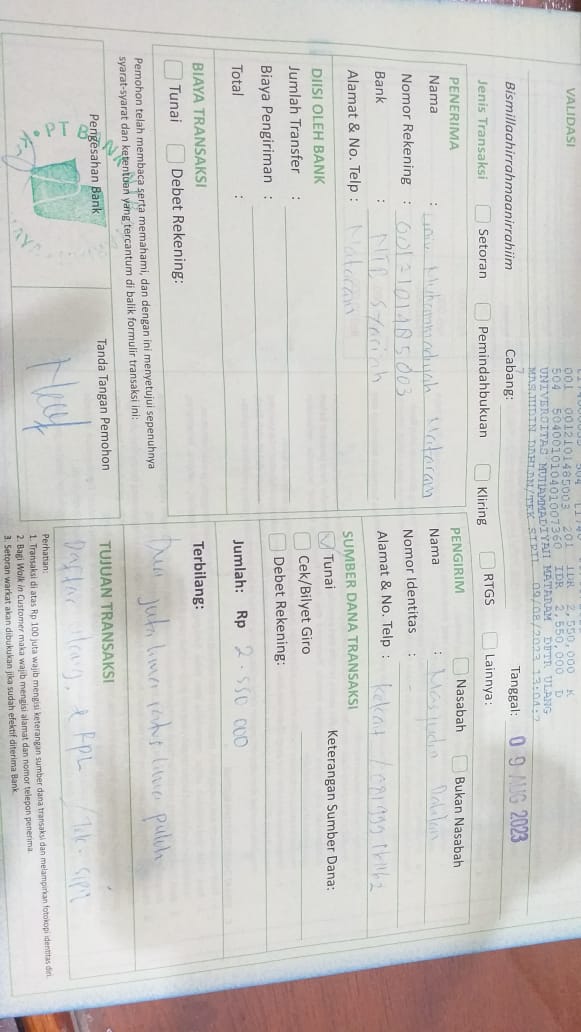 VALIDASI
001 0012101485003 201 IDR 2,550,000 K
504 504001010401007360 IDR 2,550,000 D
UNIVERSITAS MUHAMMADIYAH MATARAM DFTR ULANG
MASJUDIN DAHLAN/TEK SIPIL 09/08/2023
Bismillaahirrahmaanirrahiim
Cabang:
Tanggal: 09 AUG 2023
Jenis Transaksi Setoran Pemindahbukuan Kliring RTGS Lainnya:
PENERIMA
Nama : Univ Muhammadiyah Mataram
Nomor Rekening : 0012101485003
Bank : NTB Syariah
Alamat & No. Telp : Mataram
PENGIRIM Nasabah Bukan Nasabah
Nama : Masjudin Dahlan
Nomor Identitas : -
Alamat & No. Telp :
DIISI OLEH BANK
Jumlah Transfer :
Biaya Pengiriman :
Total :
SUMBER DANA TRANSAKSI
Tunai Keterangan Sumber Dana:
Cek/Bilyet Giro
Debet Rekening:
BIAYA TRANSAKSI
Tunai Debet Rekening:
Jumlah: Rp 2.550 000
Terbilang:
Dua juta lima ratus lima puluh
Pemohon telah membaca serta memahami, dan dengan ini menyetujui sepenuhnya
syarat-syarat dan ketentuan yang tercantum di balik formulir transaksi ini:
Pengesahan Bank
PT BANK
Tanda Tangan Pemohon
TUJUAN TRANSAKSI
Daftar Ulang, RPL / Tek-Sipil
Perhatian:
1. Transaksi di atas Rp 100 juta wajib mengisi keterangan sumber dana transaksi dan melampirkan fotokopi identitas diri.
2. Bagi Walk in Customer maka wajib mengisi alamat dan nomor telepon penerima.
3. Setoran warkat akan dibukukan jika sudah efektif diterima Bank.